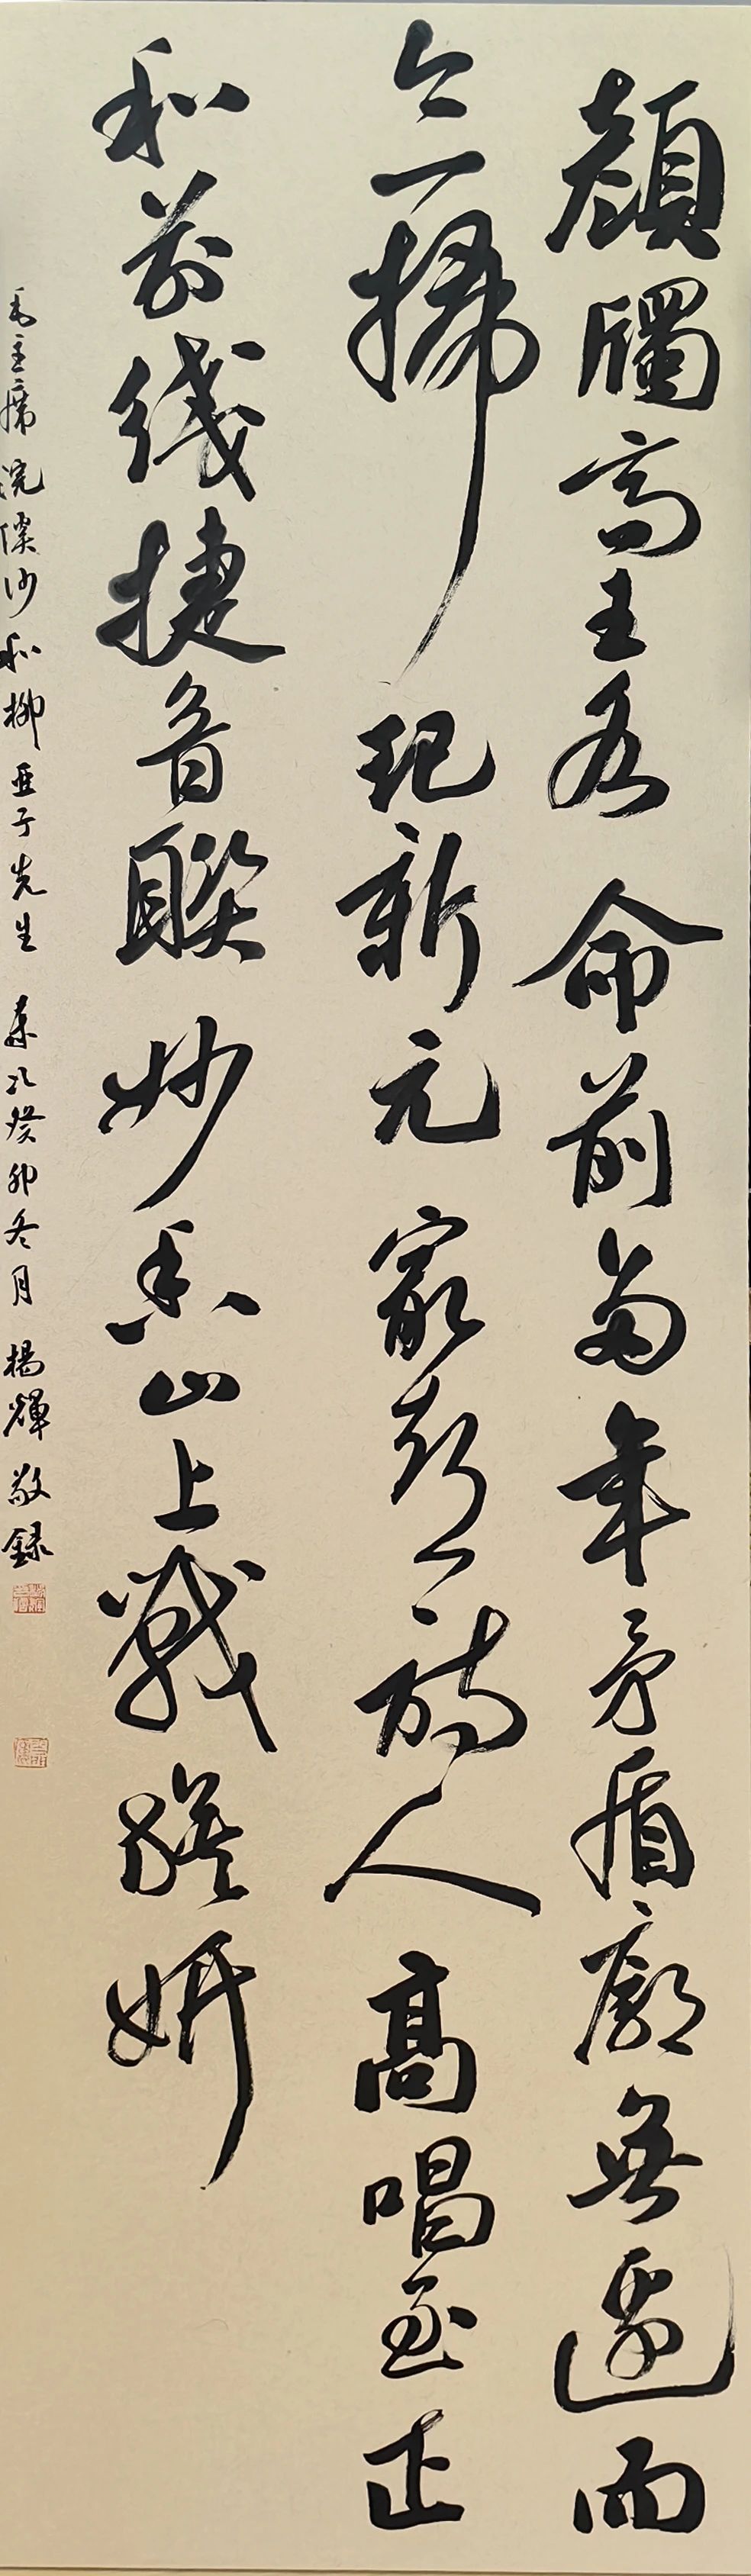 顏斶齊王各命前多年矛盾廓無邊而
今一掃紀新元最喜詩人高唱至正
和前线捷音聯妙香山上戰旗妍
毛主席浣溪沙和柳亞子先生 歲次癸卯冬月 楊輝敬録